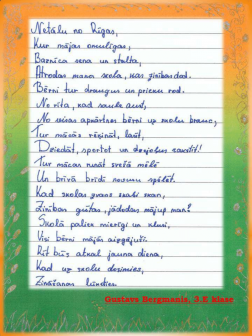 Netālu no Rīgas,
Kur mājas omulīgas,
Baznīca sena un stalta,
Atrodas mana skola, kas zinības dod.
Bērni tur draugus un prieku rod.
No rīta, kad saule aust,
No visas apkārtnes bērni uz skolu brauc,
Tur mācās rēķināt, lasīt,
Dziedāt, sportot un
Tur mācās runāt svešā mēlē
Un brīvā brīdī
Kad skolas zvans skaļi skan,
Zinības gūtas, jādodas mājup man?
Skolā paliek mierīgi un klusi,
Visi bērni mājās aizgājuši.
Rīt būs atkal jauna diena,
Kad uz skolu dosimies,
Zināšanas
Gustavs Bergmanis, 3.E klase